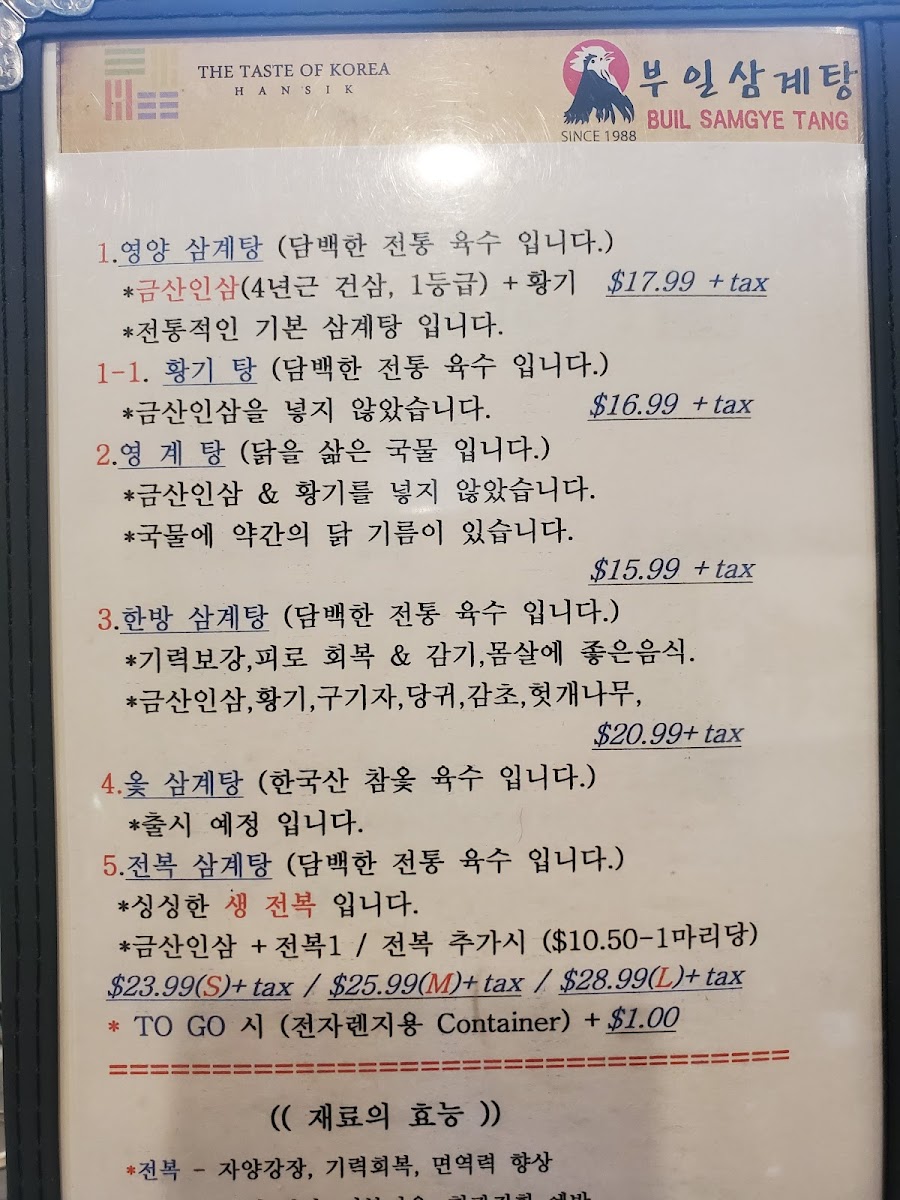 THE TASTE OF KOREA
HANSIK
부일삼계탕
BUIL SAMGYE TANG
SINCE 1988
1.영양 삼계탕 (담백한 전통 육수 입니다.)
*금산인삼(4년근 건삼, 1등급) + 황기 $17.99 + tax
*전통적인 기본 삼계탕 입니다.
1-1. 황기 탕 (담백한 전통 육수 입니다.)
*금산인삼을 넣지 않았습니다. $16.99 + tax
2.영 계 탕 (닭을 삶은 국물 입니다.)
*금산인삼 & 황기를 넣지 않았습니다.
*국물에 약간의 닭 기름이 있습니다.
$15.99 + tax
3.한방 삼계탕 (담백한 전통 육수 입니다.)
*기력보강,피로 회복 & 감기,몸살에 좋은음식.
*금산인삼,황기,구기자,당귀,감초,헛개나무,
$20.99+ tax
4.옻 삼계탕 (한국산 참옻 육수 입니다.)
*출시 예정 입니다.
5.전복 삼계탕 (담백한 전통 육수 입니다.)
*싱싱한 생 전복 입니다.
*금산인삼 + 전복1 / 전복 추가시 ($10.50-1마리당)
$23.99(S)+ tax / $25.99(M)+ tax / $28.99(L)+ tax
* TO GO 시 (전자렌지용 Container) + $1.00
(( 재료의 효능 ))
*전복 - 자양강장, 기력회복, 면역력 향상